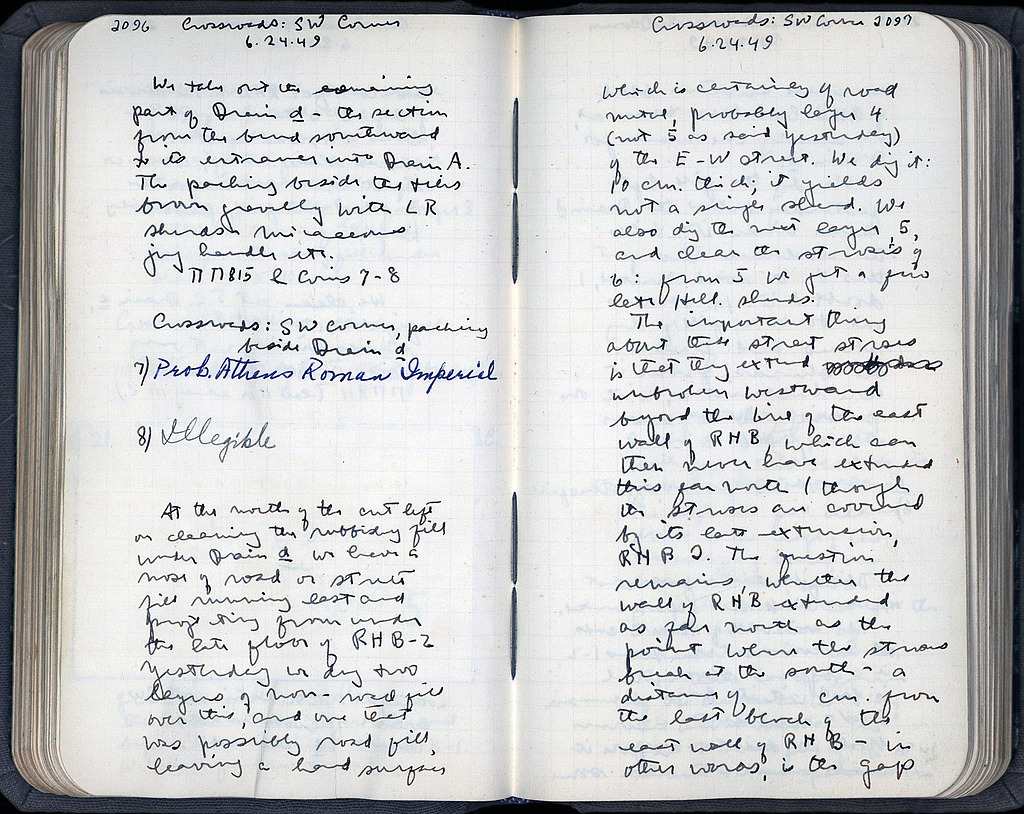 2096 Crossroads: SW Corner
6.24.49
We take out the remaining
part of Drain d - the section
from the bend southward
to its entrance into Drain A.
The packing beside the tiles
brown gravelly with LR
sherds micaceous
jug handles etc.
ΠΠ815 & Coins 7-8
Crossroads: SW corner, packing
beside Drain d
7) Prob. Athens Roman Imperial
8) Illegible
At the north of the cut left
on cleaning the rubbishy fill
under Drain d we have a
nose of road or street
fill running east and
projecting from under
the late floor of RHB-2
Yesterday we dug two
layers of non-road fill
over this, and one that
was possibly road fill,
leaving a hard surface
Crossroads: SW Corner 2097
6.24.49
which is certainly of road
metal, probably layer 4
(not 5 as said yesterday)
of the E-W street. We dig it:
10 cm. thick; it yields
not a single sherd. We
also dig the next layer, 5,
and clear the stroses of
6: from 5 we get a few
late Hell. sherds.
The important thing
about these street stroses
is that they extend
unbroken westward
beyond the line of the east
wall of RHB, which can
then never have extended
this far north (though
the stroses are covered
by its late extension,
RHB 2. The question
remains, whether the
wall of RHB extended
as far north as the
point where the stroses
break at the south - a
distance of cm. from
the last block of the
east wall of RHB - in
other words, is the gap